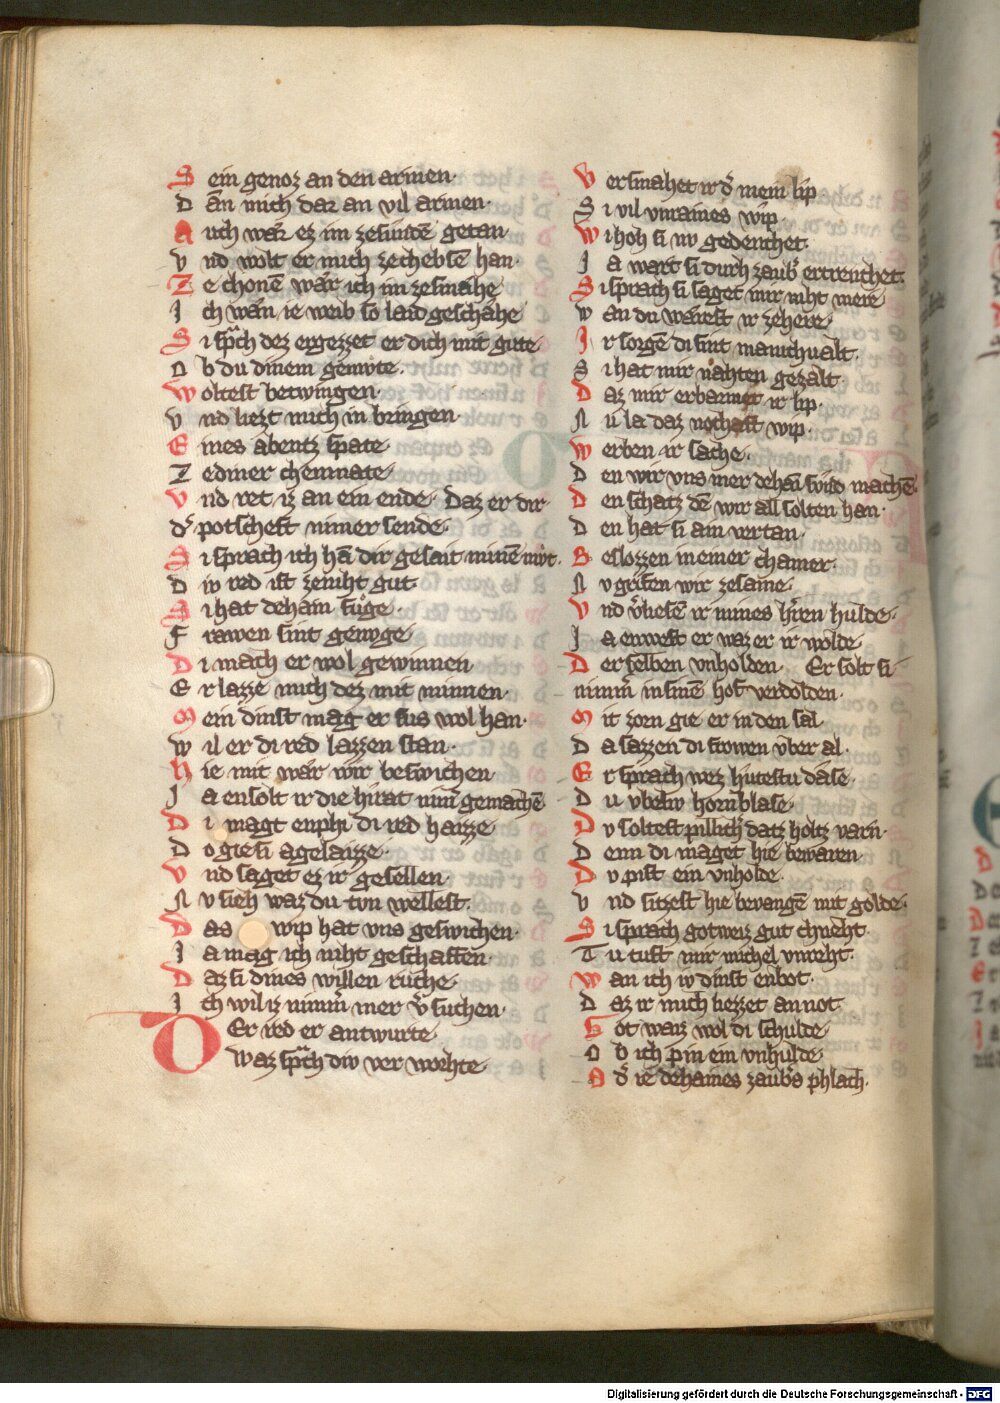 Sein genoz an den armen·
Dan mich daz an vil armen·
Auch wär ez im ze sunden getan·
Vnd wolt er mich ze chebsē han·
Ze chonē wär ich im ze smahe
Ich wän ie weib so laid geschahe
Si sprach dez ergezzet er dich mit gute
Ob du dinem gemvte·
Woltest betwingen·
Vnd liezt mich in bringen·
Eines abentz spate·
Ze diner chemnate·
Vnd ret iz an ein ende· Daz er dir
d' potscheft nimer sende·
Si sprach ich hā dir gesait minē mvt·
Div red ist ze niht gut
Si hat dehain fuge·
Frawen sint genvge·
Di mach er wol gewinnen
Er lazze mich dez mit minnen·
Mein dinst mag er sus wol han·
Wil er di red lazzen stan·
Hie mit wär wir beswichen
Ja ensolt ir die hirat nim̄ gemachen
Di magt enphi di red haizze
Do gie si agelaizze·
Vnd saget ez ir gesellen
Nv sieh waz du tvn wellest·
Das wip hat vns geswichen·
Ja mag ich niht geschaffen
Daz si dines willen ruche·
Ich wil iz nim̄m mer v'suchen·
Der red er antwurte
Waz sprach div ver worhte·
Versmahet ir d' mein lip
Si vil vnraines wip
Wi hoh si nv gedenchet·
Ja wart si durh zaub' ertrenchet·
Si sprach si saget mir niht mere
Wan du wärest ir ze here·
Ir sorgē di sint manichualt·
Si hat mir nähten gezalt
Daz mir erbarmet ir lip·
Nu la daz nothaft wip·
Werben ir sache·
Den wir vns mer dehain swār machē
Den schatz dē wir all solten han·
Den hat si ain vertan·
Beslozzen in einer chamer·
Nv grifen wir zesame·
Vnd v'liesē ir mines h'ren hulde·
Ja enwest er waz er ir wolde
Der selben vnholden· Er solt si
nimm' in sinē hof verdolden·
Mit zorn gie er in den sal
Da sazzen di frowen vber al·
Er sprach wez hutestu dase·
Du vbelw hornblase·
Dv soltest pillich' datz holtz varn·
Denn di maget hie bewaren
Dv pist ein vnholde·
Vnd sitzest hie bevangē mit golde·
Si sprach gotweiz gut chneht·
Tu tust mir michel vnreht·
Wan ich iv dinst enbot·
Daz ir mich hezzet an not
Got waiz wol di schulde
Ob ich pin ein vnhulde
Od' ie dehaines zaub's phlach·
Digitalisierung gefördert durch die Deutsche Forschungsgemeinschaft - DFG